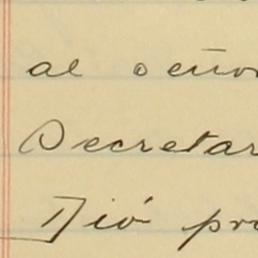 al señor
Secretar
Dió pro